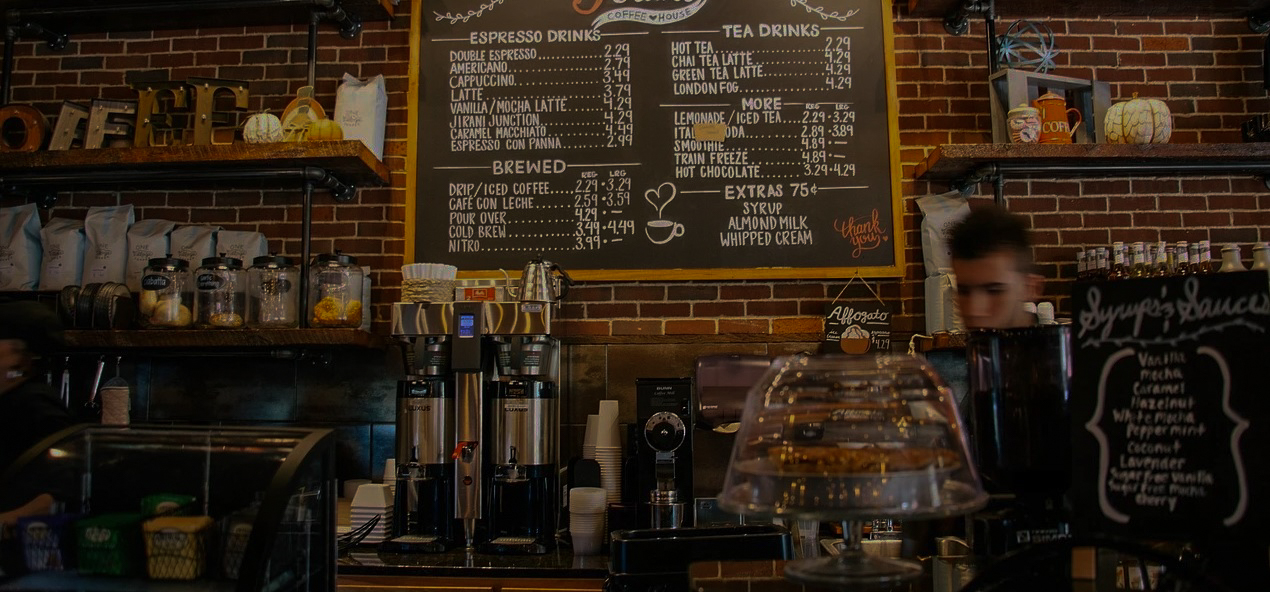 COFFEE HOUSE
ESPRESSO DRINKS
DOUBLE ESPRESSO 2.29
AMERICANO 2.79
CAPPUCCINO 3.49
LATTE 3.79
VANILLA/MOCHA LATTE 4.29
JIRANI JUNCTION 4.29
CARAMEL MACCHIATO 4.49
ESPRESSO CON PANNA 2.99
BREWED
REG LRG
DRIP/ICED COFFEE 2.29 • 3.29
CAFÉ CON LECHE 2.59 • 3.59
POUR OVER 4.29 • —
COLD BREW 3.49 • 4.49
NITRO 3.99 • —
TEA DRINKS
HOT TEA 2.29
CHAI TEA LATTE 4.29
GREEN TEA LATTE 4.29
LONDON FOG 4.29
MORE
REG LRG
LEMONADE/ICED TEA 2.29 • 3.29
2.89 • 3.89
SMOOTHIE 4.89 • —
TRAIN FREEZE 4.89 • —
HOT CHOCOLATE 3.29 • 4.29
EXTRAS 75¢
SYRUP
ALMOND MILK
WHIPPED CREAM
thank you
Affogato
$4.29
Syrups & Sauces
Vanilla
mocha
Caramel
Hazelnut
White mocha
Peppermint
Coconut
Lavender
Sugar Free Vanilla
Sugar Free Mocha
cherry